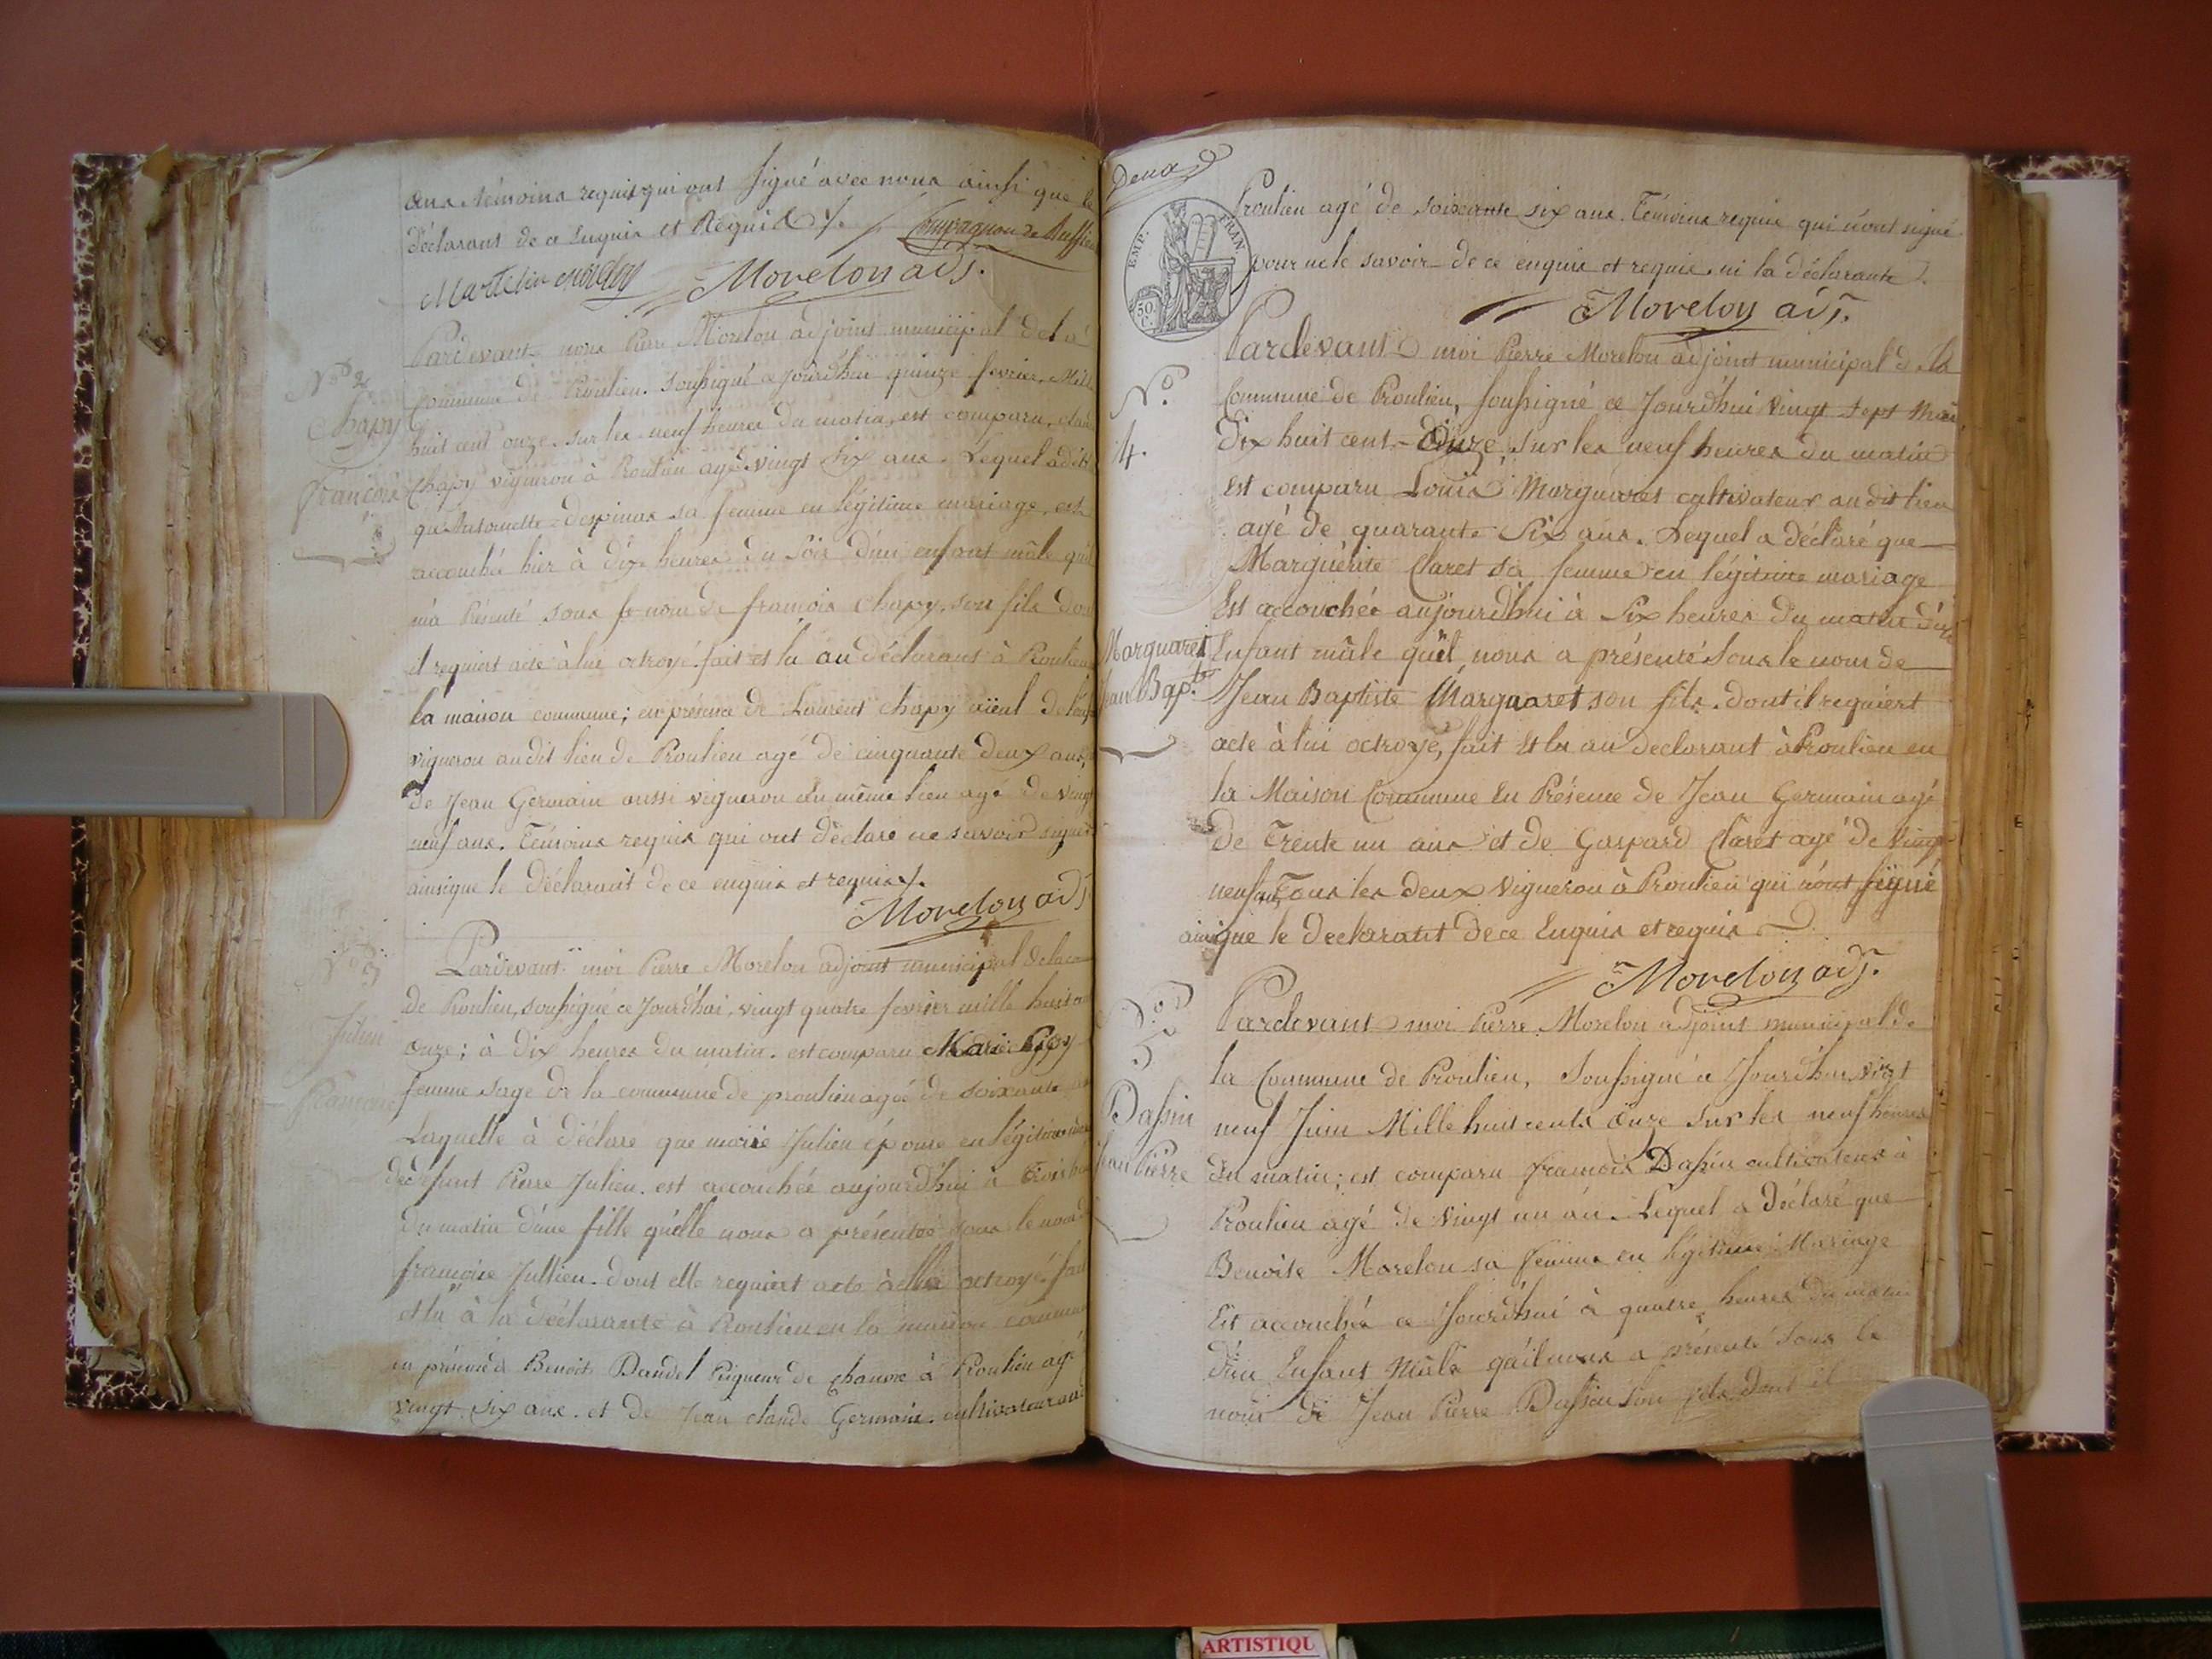 ans. témoins requis qui ont signé avec nous ainsi que le
déclarant de ce enquis et Requis
Morelon adj.
No 2
Chapy
françois
Pardevant nous Pierre Morelon adjoint municipal de la
Commune de Proulieu. soussigné ce jourd'hui quinze fevrier Mil
huit cent onze. sur les neuf heures du matin, est comparu, claude
Chapy vigneron à Proulieu agé vingt six ans. Lequel a déclaré
qu'Antoinette Despinas sa femme en légitime mariage, est
accouchée hier à dix heures du soir d'un enfant mâle qu'il
m'a Présenté sous le nom de francois chapy, son fils dont
il requiert acte à lui octroyé. fait et lu au déclarant à Proulieu
la maison commune; en présence de Laurent chapy aïeul de
vigneron audit lieu de Proulieu agé de cinquante deux ans,
de Jean Germain aussi vigneron du même lieu agé de vingt
neuf ans. Témoins requis qui ont déclaré ne savoir signer
ainsique le déclarant de ce enquis et requis
Morelon adj
No 3
Julien
francoise
Pardevant moi Pierre Morelon adjoint municipal de la
de Proulieu, soussigné ce Jourd'hui, vingt quatre fevrier mille huit
onze; à dix heures du matin. est comparu Marie
femme sage de la commune de proulieu agée de soixante
Laquelle à déclaré que marie Julien épouse en légitime
de défunt Pierre Julien. est accouchée aujourd'hui à trois
du matin d'une fille qu'elle nous a présentée sous le nom
francoise Jullien. dont elle requiert acte à elle octroyé. fait
et lu à la déclarante à Proulieu en la maison commune
en présence de Benoit Dandel Peigneur de chanvre à Proulieu agé
vingt six ans. et de Jean claude Germain. cultivateur aud
Deux
EMP. FRAN.
50 C.
Proulieu agé de soixante six ans. Témoins requis qui n'ont signé
pour ne le savoir de ce enquis et requis. ni la déclarante.
Morelon adj.
No
4.
Marguaret
Jean Bap.te
Pardevant moi Pierre Morelon adjoint municipal de la
Commune de Proulieu, soussigné ce Jourd'hui vingt sept
Dix huit cent Onze, sur les neuf heures du matin
est comparu Louis Marguaret cultivateur audit lieu
agé de quarante Six ans. Lequel a déclaré que
Marguérite Claret sa femme en légitime mariage
Est accouchée aujourd'hui à Six heures du matin d'un
Enfant mâle qu'il nous a présenté sous le nom de
Jean Baptiste Marguaret son fils. dont il requiert
acte à lui octroyé, fait et lu au declarant à Proulieu en
la Maison Commune En Présence de Jean Germain agé
de Trente un ans et de Gaspard Claret agé de vingt
neuf ans Tous les deux vigneron à Proulieu qui n'ont signé
ainsique le declarant de ce Enquis et requis
Morelon adj.
No
5
Dassin
Jean Pierre
Pardevant moi Pierre Morelon adjoint municipal de
la Commune de Proulieu, Soussigné ce Jourd'hui vingt
neuf Juin Mille huit cents Onze sur les neuf heures
du matin; est comparu francois Dassin cultivateur à
Proulieu agé de vingt un an. Lequel a Déclaré que
Benoite Morelon sa femme en légitime Mariage
Est accouchée ce Jourd'hui à quatre heures du matin
d'un Enfant Mâle qu'il nous a présenté sous le
nom de Jean Pierre Dassin son fils dont il
ARTISTIQU